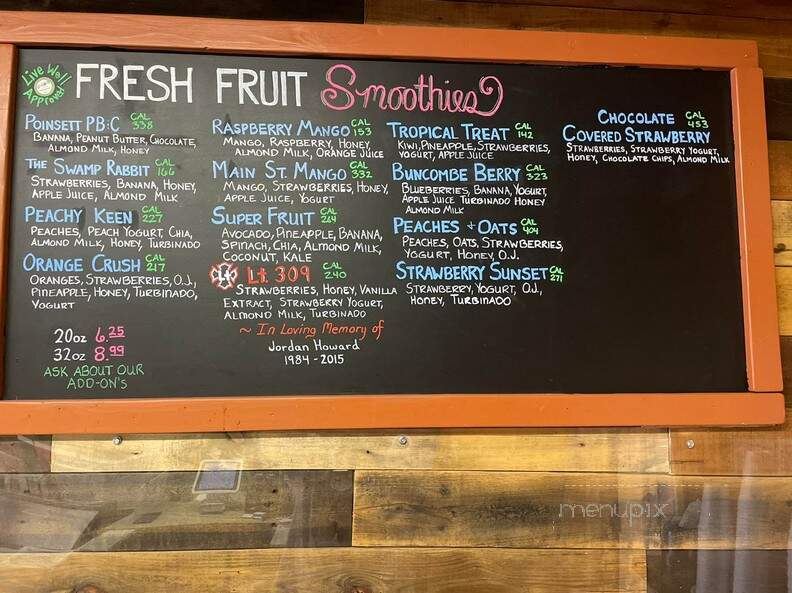 Live Well Approved
FRESH FRUIT Smoothies
POINSETT PB:C CAL 338
BANANA, PEANUT BUTTER, CHOCOLATE,
ALMOND MILK, HONEY
THE SWAMP RABBIT CAL 166
STRAWBERRIES, BANANA, HONEY,
APPLE JUICE, ALMOND MILK
PEACHY KEEN CAL 227
PEACHES, PEACH YOGURT, CHIA,
ALMOND MILK, HONEY, TURBINADO
ORANGE CRUSH CAL 217
ORANGES, STRAWBERRIES, O.J.,
PINEAPPLE, HONEY, TURBINADO,
YOGURT
20oz 6.25
32oz 8.99
ASK ABOUT OUR
ADD-ON'S
RASPBERRY MANGO CAL 153
MANGO, RASPBERRY, HONEY,
ALMOND MILK, ORANGE JUICE
MAIN ST. MANGO CAL 332
MANGO, STRAWBERRIES, HONEY,
APPLE JUICE, YOGURT
SUPER FRUIT CAL 264
AVOCADO, PINEAPPLE, BANANA,
SPINACH, CHIA, ALMOND MILK,
COCONUT, KALE
Lt Lt. 309 CAL 240
STRAWBERRIES, HONEY, VANILLA
EXTRACT, STRAWBERRY YOGURT,
ALMOND MILK, TURBINADO
~ In Loving Memory of
Jordan Howard
1984 - 2015
TROPICAL TREAT CAL 142
KIWI, PINEAPPLE, STRAWBERRIES,
YOGURT, APPLE JUICE
BUNCOMBE BERRY CAL 323
BLUEBERRIES, BANANA, YOGURT,
APPLE JUICE TURBINADO HONEY
ALMOND MILK
PEACHES + OATS CAL 404
PEACHES, OATS, STRAWBERRIES,
YOGURT, HONEY, O.J.
STRAWBERRY SUNSET CAL 271
STRAWBERRY, YOGURT, O.J.,
HONEY, TURBINADO
CHOCOLATE CAL 453
COVERED STRAWBERRY
STRAWBERRIES, STRAWBERRY YOGURT,
HONEY, CHOCOLATE CHIPS, ALMOND MILK
menupix